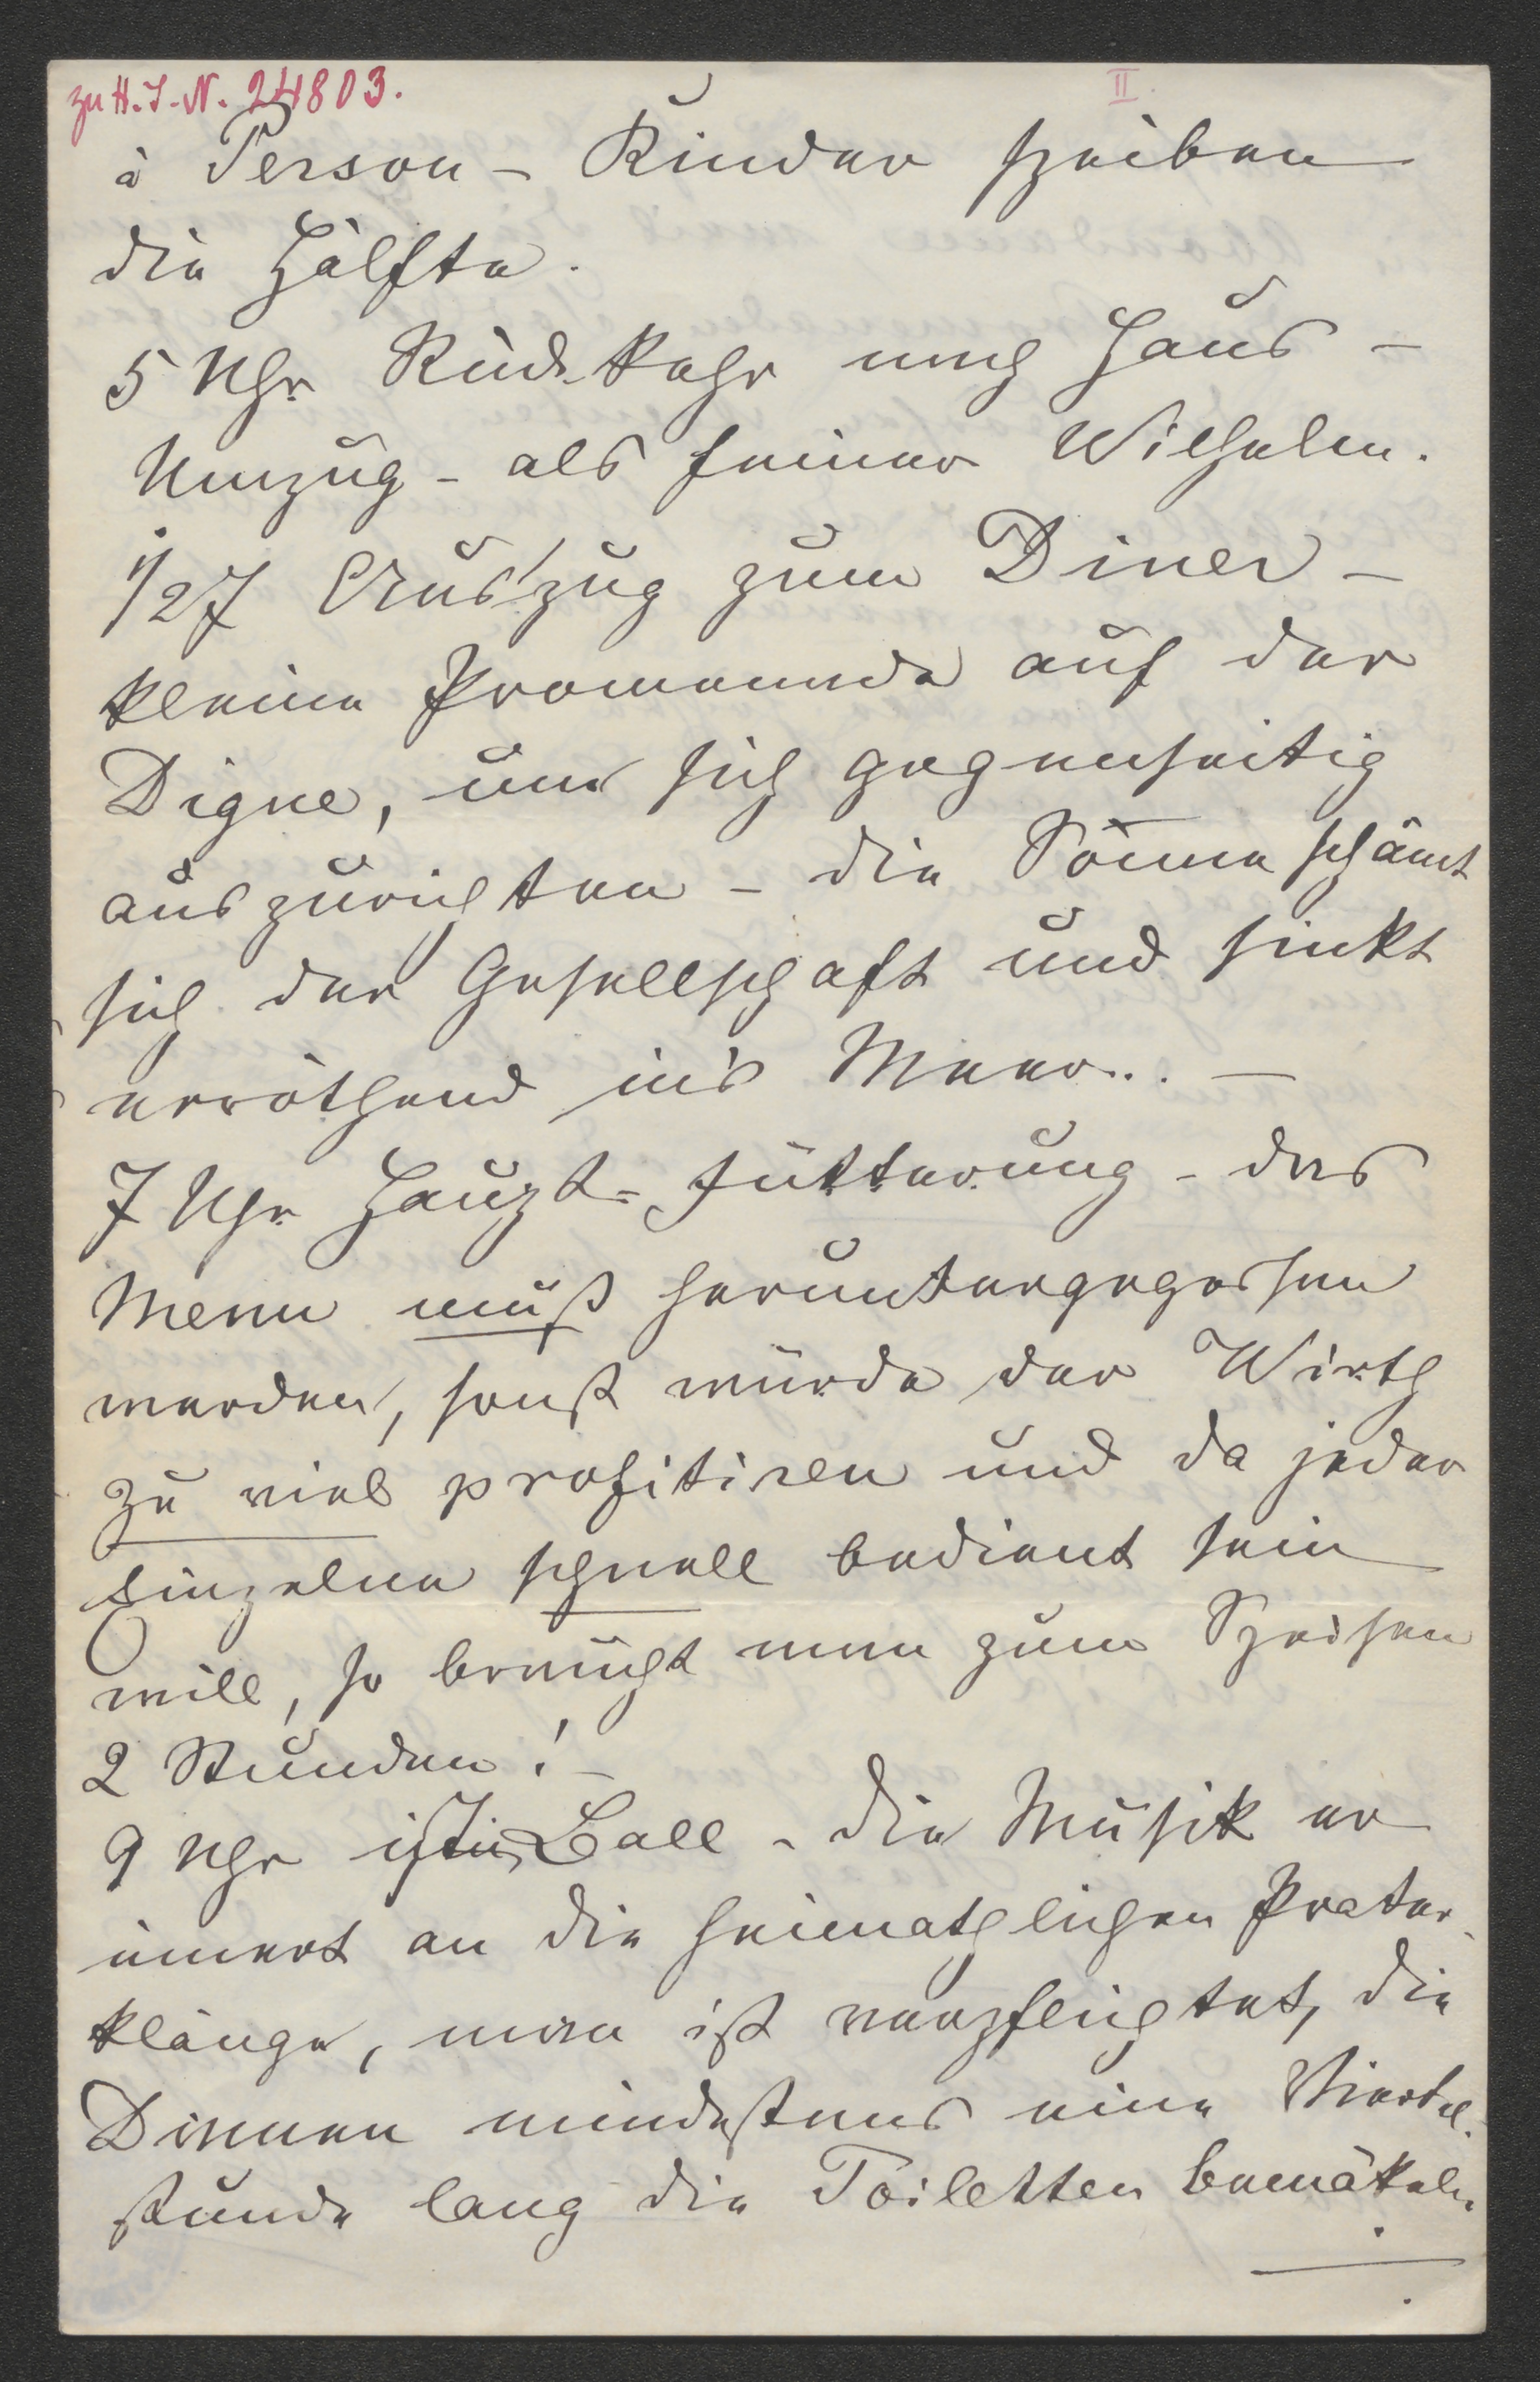 zu H.I.-N. 24803.
II.
à Person – Kinder speiben
die Hälfte.
5 Uhr Rück-kehr nach Haus –
Umzug – als feiner Wilhelm.
1/27 Auszug zum Diner –
kleine Promenade auf der
Digue, um sich gegenseitig
auszurichten – die Sonne schämt
sich der Gesellschaft und sinkt
erröthend in's Meer.. –
7 Uhr Haupt-Fütterung – das
Menu muß heruntergegessen
werden, sonst würde der Wirth
zu viel profitiren und da jeder
Einzelne schnell bedient sein
will, so braucht man zum Speisen
2 Stunden! –
9 Uhr ist Ball – die Musik er
innert an die heimathlichen Prater-
klänge, man ist verpflichtet, die
Damen mindestens eine Viertel-
stunde lang die Toiletten bemäkeln